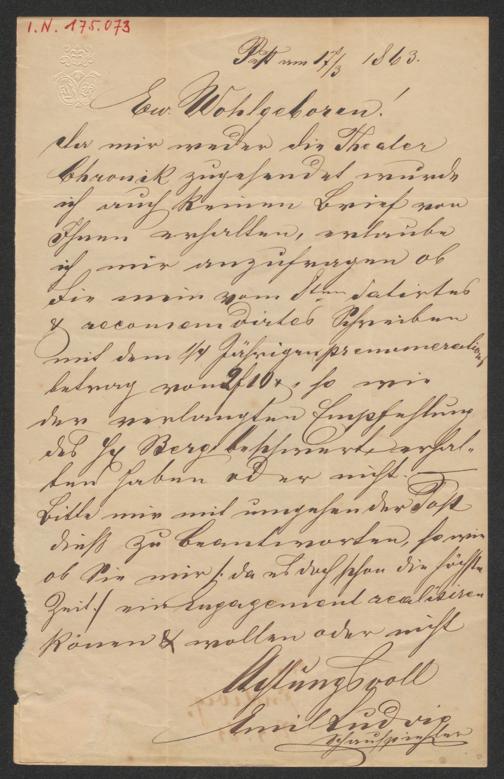 I.N. 175.073
Pest am 17/3 1863.
Ew. Wohlgeboren!
Da mir weder die Theater
Chronik zugesendet wurde
ich auch keinen Brief von
Ihnen erhalten, erlaube
ich mir anzufragen ob
Sie mein vom 8ten datirtes
& recomendirtes Schreiben
mit dem 1/4 Jährigen prenumerations
betrag von 2f 10x, so wie
der verlangten Empfehlung
des H Berg beschwert erhal-
ten haben oder nicht. —
Bitte mir mit umgehender Post
dieß zu beantworten, so wie
ob Sie mir /: da es doch schon die höchste
Zeit :/ ein Engagement realisiren
können & wollen oder nicht
Achtungsvoll
Emil Ludwig
Schauspieler